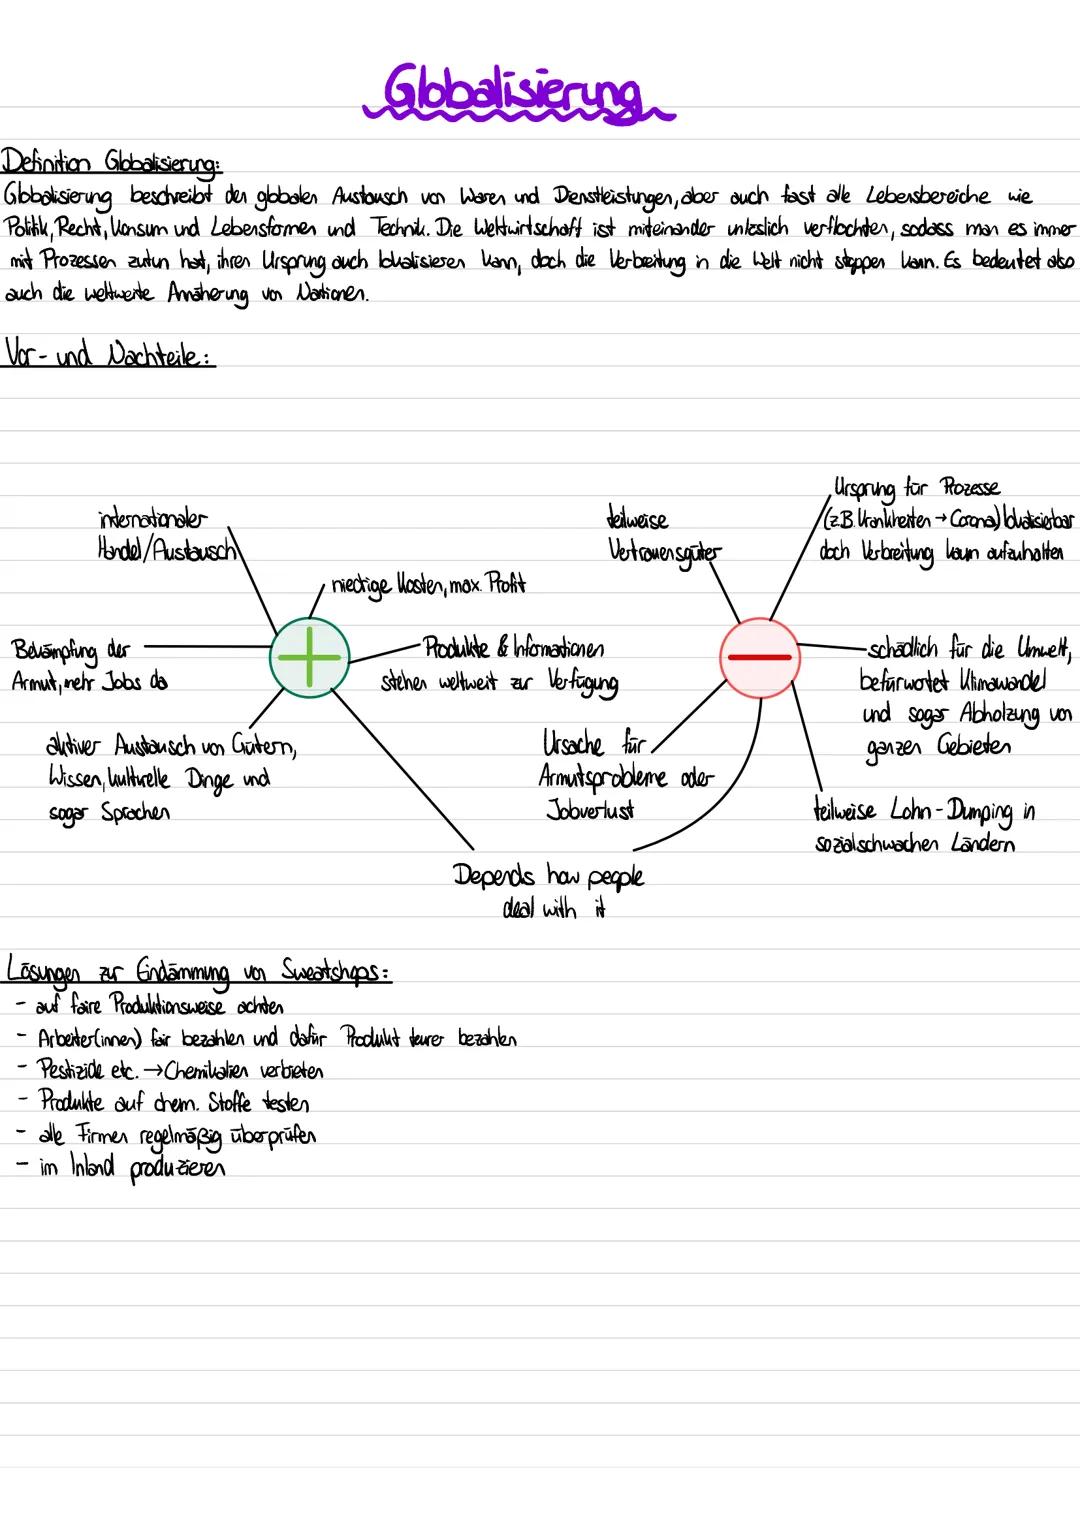 Globalisierung
Definition Globalisierung:
Globalisierung beschreibt den globalen Austausch von Waren und Dienstleistungen, aber auch fast alle Lebensbereiche wie
Politik, Recht, Konsum und Lebensformen und Technik. Die Weltwirtschaft ist miteinander unlöslich verflochten, sodass man es immer
mit Prozessen zutun hat, ihren Ursprung auch lokalisieren kann, doch die Verbreitung in die Welt nicht stoppen kann. Es bedeutet also
auch die weltweite Annäherung von Nationen.
Vor- und Nachteile:
internationaler
Handel/Austausch
niedrige Kosten, max. Profit
Bekämpfung der
Armut, mehr Jobs da
Produkte & Informationen
stehen weltweit zur Verfügung
aktiver Austausch von Gütern,
Wissen, kulturelle Dinge und
sogar Sprachen
teilweise
Vertrauensgüter
Ursprung für Prozesse
(z.B. Krankheiten → Corona) lokalisierbar
doch Verbreitung kaum aufzuhalten
schädlich für die Umwelt,
befürwortet Klimawandel
und sogar Abholzung von
ganzen Gebieten
Ursache für
Armutsprobleme oder
Jobverlust
teilweise Lohn-Dumping in
sozialschwachen Ländern
Depends how people
deal with it
Lösungen zur Eindämmung von Sweatshops:
- auf faire Produktionsweise achten
- Arbeiter(innen) fair bezahlen und dafür Produkt teurer bezahlen
- Pestizide etc. → Chemikalien verbieten
- Produkte auf chem. Stoffe testen
- alle Firmen regelmäßig überprüfen
- im Inland produzieren